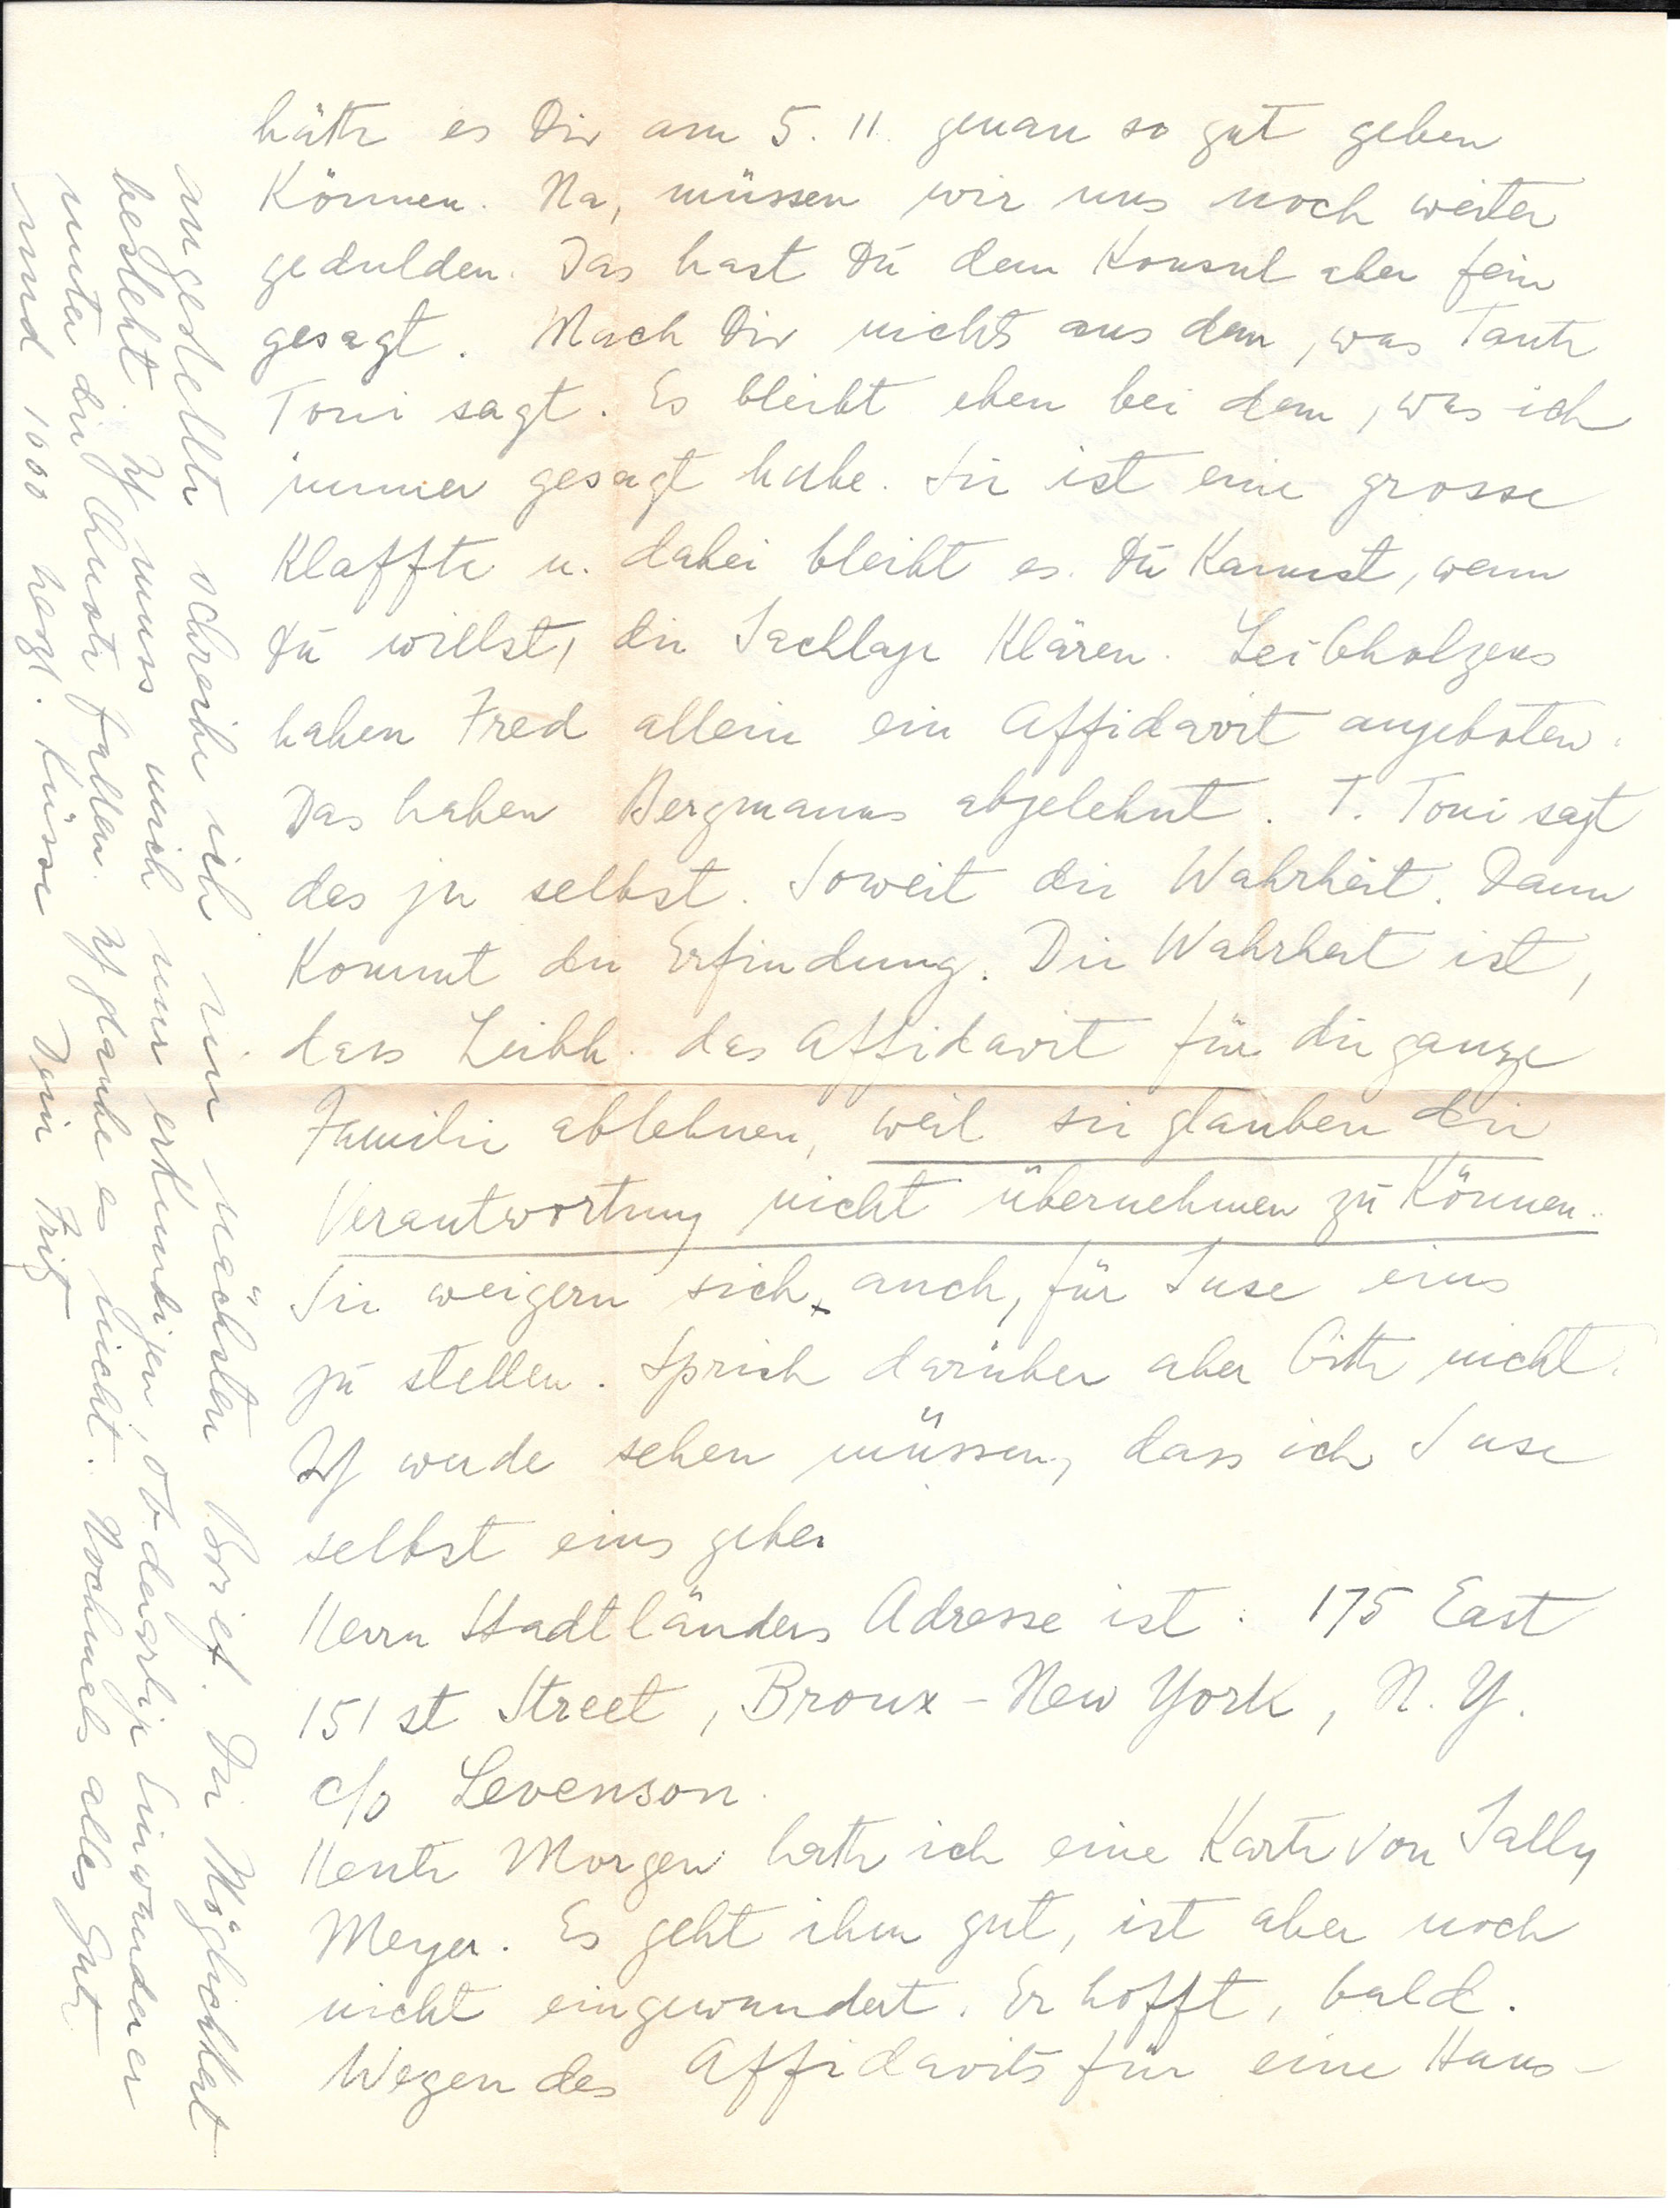 hätte es Dir am 5. 11. genau so gut geben
Können. Na, müssen wir uns noch weiter
gedulden. Das hast Du dem Konsul aber fein
gesagt. Mach Dir nichts aus dem, was Tante
Toni sagt. Es bleibt eben bei dem, was ich
immer gesagt habe. Sie ist eine grosse
Klaffte u. dabei bleibt es. Du Kannst, wenn
Du willst, die Sachlage Klären. Leibholzens
haben Fred allein ein Affidavit angeboten.
Das haben Bergmanns abgelehnt. T. Toni sagt
das ja selbst. Soweit die Wahrheit. Dann
Kommt die Erfindung. Die Wahrheit ist,
dass Leibh. das Affidavit für die ganze
Familie ablehnen, weil sie glauben die
Verantwortung nicht übernehmen zu Können.
Sie weigern sich auch, für Suse eins
zu stellen. Sprich darüber aber bitte nicht.
Ich werde sehen müssen, dass ich Suse
selbst eins gebe.
Herrn Stadtländers Adresse ist: 175 East
151 st Street, Bronx - New York, N. Y.
c/o Levenson.
Heute Morgen hatte ich eine Karte von Sally
Meyer. Es geht ihm gut, ist aber noch
nicht eingewandert. Er hofft, bald.
Wegen des Affidavits für eine Haus-
angestellte schreibe ich im nächsten Brief. Die Möglichkeit
besteht. Ich muss mich nur erkundigen, ob derartige Einwanderer
unter die Quote fallen. Ich glaube es nicht. Nochmals alles Gute
und 1000 herzl. Küsse Dein Fritz